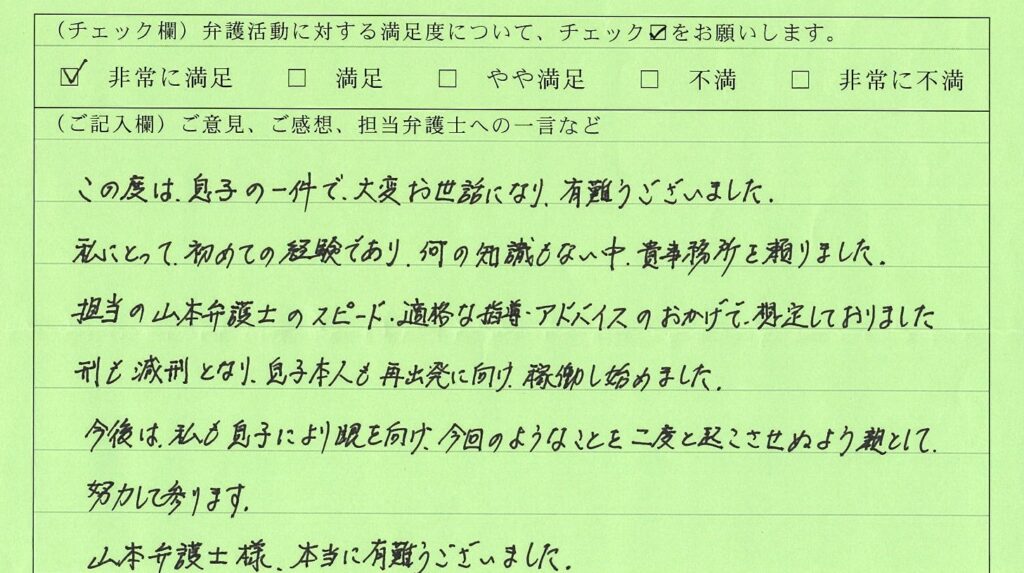 （チェック欄）弁護活動に対する満足度について、チェック☑をお願いします。
☑ 非常に満足 □ 満足 □ やや満足 □ 不満 □ 非常に不満
（ご記入欄）ご意見、ご感想、担当弁護士への一言など
この度は、息子の一件で、大変お世話になり、有難うございました。
私にとって、初めての経験であり、何の知識もない中、貴事務所を頼りました。
担当の山本弁護士のスピード・適格な指導・アドバイスのおかげで、想定しておりました
刑も減刑となり、息子本人も再出発に向け、稼働し始めました。
今後は、私も息子により眼を向け、今回のようなことを二度と起こさせぬよう親として、
努力して参ります。
山本弁護士様、本当に有難うございました。